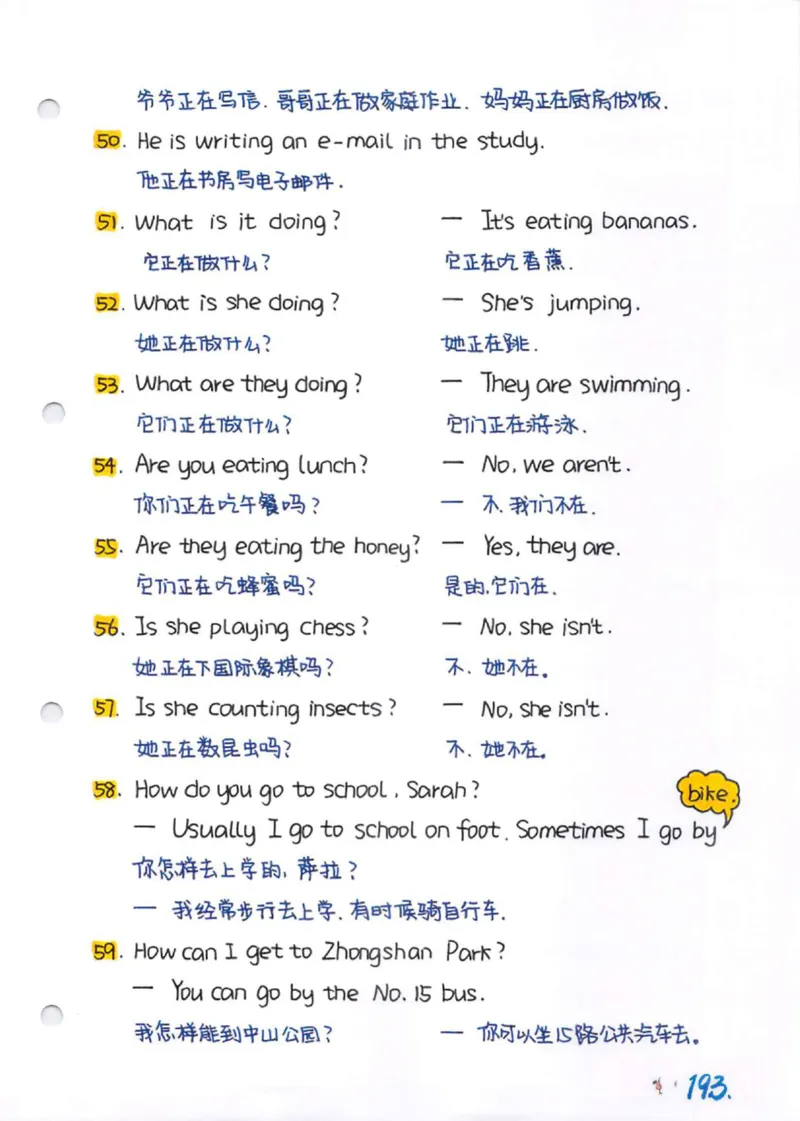 爷爷正在写信. 哥哥正在做家庭作业. 妈妈正在厨房做饭.
50. He is writing an e-mail in the study.
他正在书房写电子邮件.
51. What is it doing? — It's eating bananas.
它正在做什么? 它正在吃香蕉.
52. What is she doing? — She's jumping.
她正在做什么? 她正在跳.
53. What are they doing? — They are swimming.
它们正在做什么? 它们正在游泳.
54. Are you eating lunch? — No, we aren't.
你们正在吃午餐吗? — 不. 我们不在.
55. Are they eating the honey? — Yes, they are.
它们正在吃蜂蜜吗? 是的, 它们在.
56. Is she playing chess? — No, she isn't.
她正在下国际象棋吗? 不. 她不在。
57. Is she counting insects? — No, she isn't.
她正在数昆虫吗? 不. 她不在。
58. How do you go to school, Sarah?
— Usually I go to school on foot. Sometimes I go by bike.
你怎样去上学的, 萨拉?
— 我经常步行去上学. 有时候骑自行车.
59. How can I get to Zhongshan Park?
— You can go by the No. 15 bus.
我怎样能到中山公园? — 你可以坐15路公共汽车去。
193.